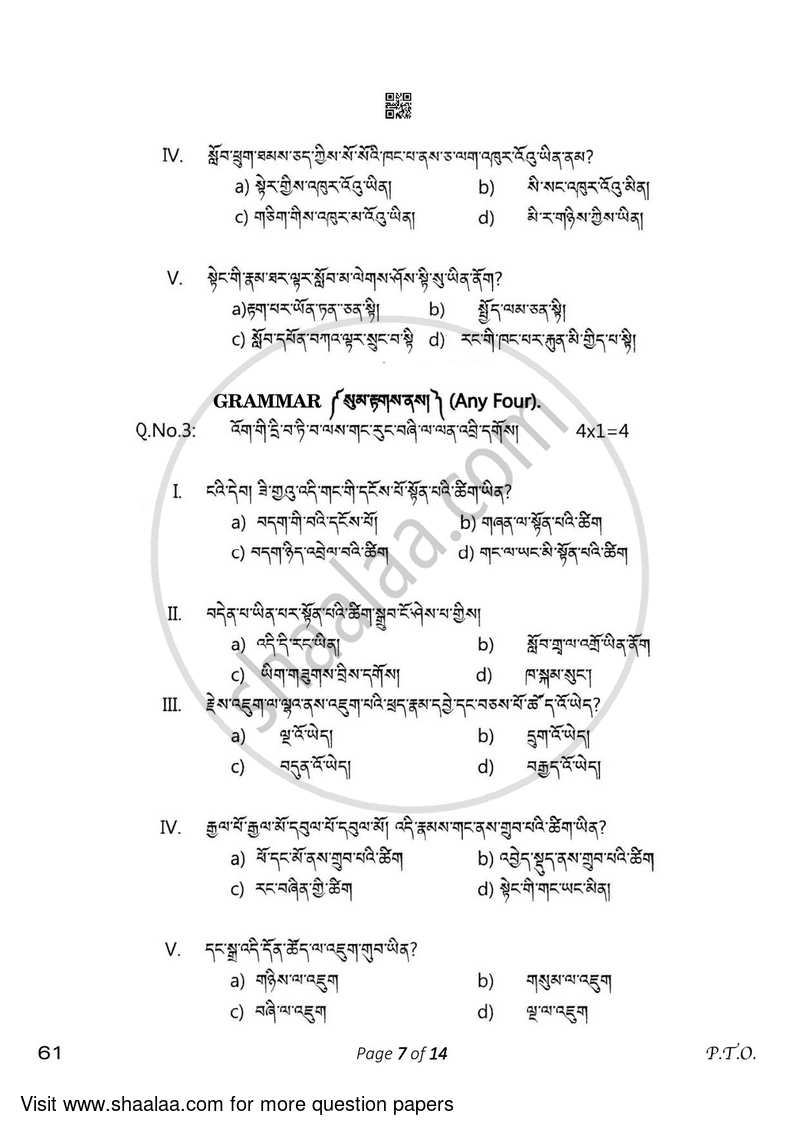 IV. སློབ་ཕྲུག་ཐམས་ཅད་ཀྱིས་སོ་སོའི་ཁང་པ་ནས་ཅ་ལག་འཁུར་འོའུ་ཡིན་ནམ?
a) སྟེར་གྱིས་འཁུར་འོའུ་ཡིན། b) སི་སང་འཁུར་འོའུ་མིན།
c) གཅིག་གིས་འཁུར་མ་འོའུ་ཡིན། d) མི་ར་གཉིས་ཀྱིས་ཡིན།
V. སྟེང་གི་རྣམ་ཐར་ལྟར་སློབ་མ་ལེགས་ཤོས་སྟི་སུ་ཡིན་ནོག?
a)རྟག་པར་ཡོན་ཏན་ཅན་སྟི། b) སྤྱོད་ལམ་ཅན་སྟི།
c) སློབ་དཔོན་བཀའ་ལྟར་སྲུང་བ་སྟི d) རང་གི་ཁང་པར་རྒྱུན་མི་གྱིད་པ་སྟི།
GRAMMAR ༼སུམ་རྟགས་ནས།༽ (Any Four).
Q.No.3: འོག་གི་དྲི་བ་ཏི་བ་ལས་གང་རུང་བཞི་ལ་ལན་འབྲི་དགོས། 4x1=4
I. ངའི་དེབ། ཟི་གྱུའུ་འདི་གང་གི་དངོས་པོ་སྟོན་པའི་ཚིག་ཡིན?
a) བདག་གི་བའི་དངོས་པོ། b) གཞན་ལ་སྟོན་པའི་ཚིག
c) བདག་ཉིད་འབྲེལ་བའི་ཚིག d) གང་ལ་ཡང་མི་སྟོན་པའི་ཚིག
II. བདེན་པ་ཡིན་པར་སྟོན་པའི་ཚིག་སྒྲུབ་ངོ་ཤེས་པ་གྱིས།
a) འདི་དི་རང་ཡིན། b) སློབ་གྲྭ་ལ་འགྲོ་ཡིན་ནོག
c) ཡིག་གཟུགས་བྲིས་དགོས། d) ཁ་སྐམ་སུང་།
III. རྗེས་འཇུག་ལ་ལྟའ་ནས་འཇུག་པའི་ཕྲད་རྣམ་དབྱེ་དང་བཅས་པོ་ཚོད་འོ་ཡེད?
a) ལྔ་འོ་ཡེད། b) དྲུག་འོ་ཡེད།
c) བདུན་འོ་ཡེད། d) བརྒྱད་འོ་ཡེད།
IV. རྒྱལ་པོ་རྒྱལ་མོ་དབུལ་པོ་དབུལ་མོ། འདི་རྣམས་གང་ནས་གྲུབ་པའི་ཚིག་ཡིན?
a) ཕོ་དང་མོ་ནས་གྲུབ་པའི་ཚིག b) འབྱེད་སྡུད་ནས་གྲུབ་པའི་ཚིག
c) རང་བཞིན་གྱི་ཚིག d) སྟེང་གི་གང་ཡང་མིན།
V. དང་སྒྲ་འདི་དོན་ཚོད་ལ་འཇུག་གུབ་ཡིན?
a) གཉིས་ལ་འཇུག b) གསུམ་ལ་འཇུག
c) བཞི་ལ་འཇུག d) ལྔ་ལ་འཇུག
shaalaa.com
61 Page 7 of 14 P.T.O.
Visit www.shaalaa.com for more question papers